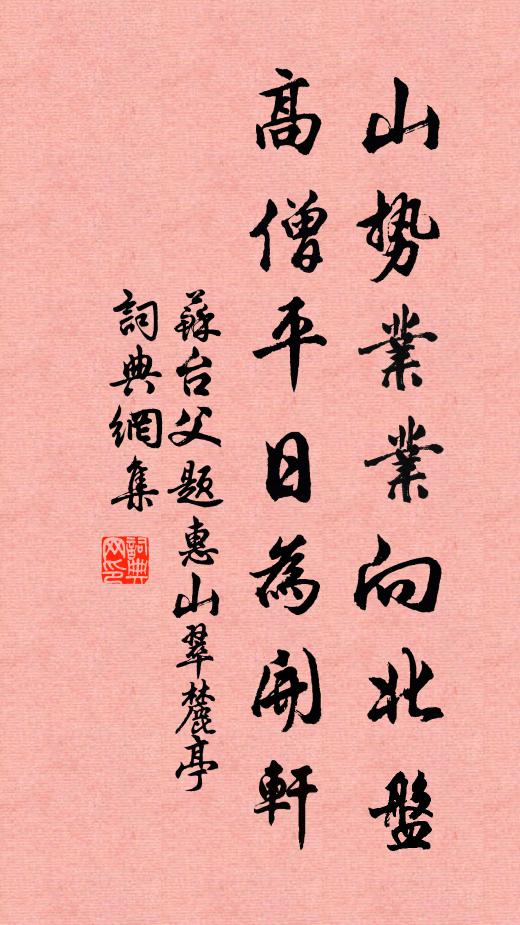 山势業業向北盤
高僧平日為開軒
蘇台父题惠山翠麓亭
詞典網集
詞典网印